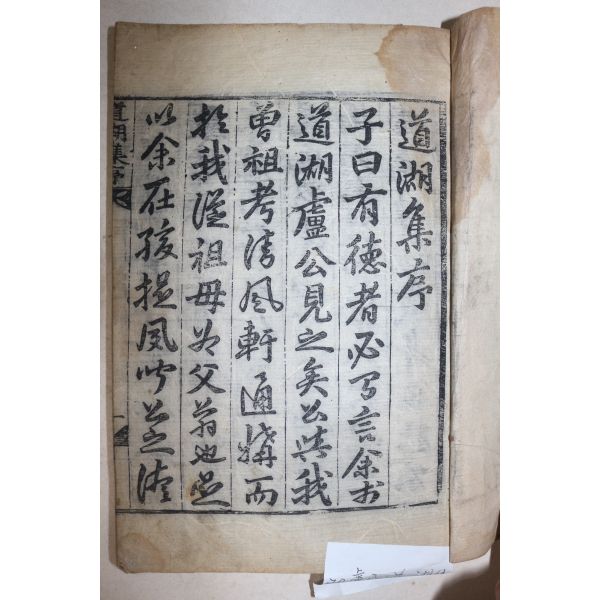 道湖集序
子曰有德者必有言余於
道湖盧公見之矣公與我
曾祖考淸風軒通媾而
於我從祖母爲父翁也是
以余在孩提夙聞公之
道湖集序
一